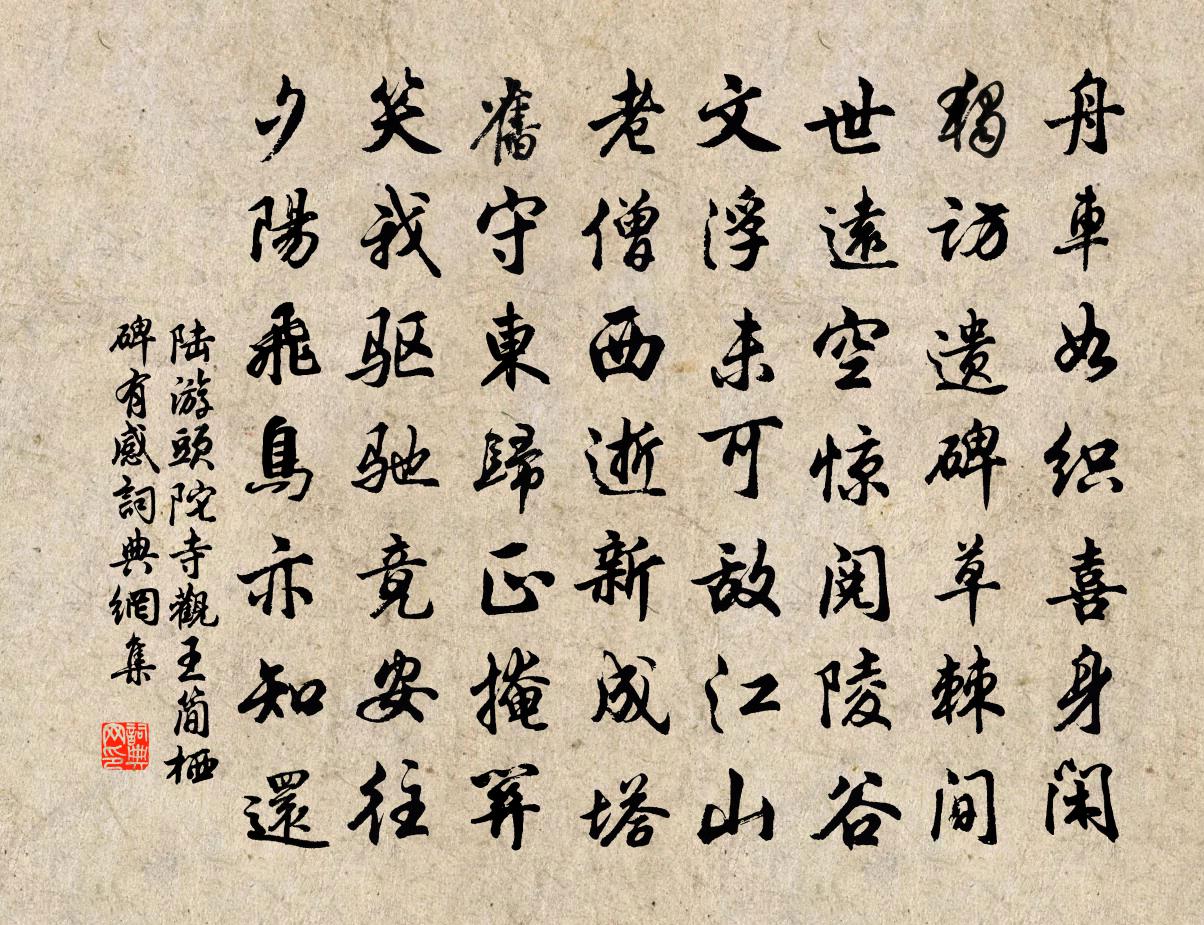 舟車如织喜身閑
獨访遗碑草棘间
世遠空惊阅陵谷
文浮未可敌江山
老僧西逝新成塔
舊守東歸正掩關
笑我驱驰竟安往
夕陽飛鳥亦知還
陆游頭陀寺觀王简栖
碑有感詞典網集
詞典
网印